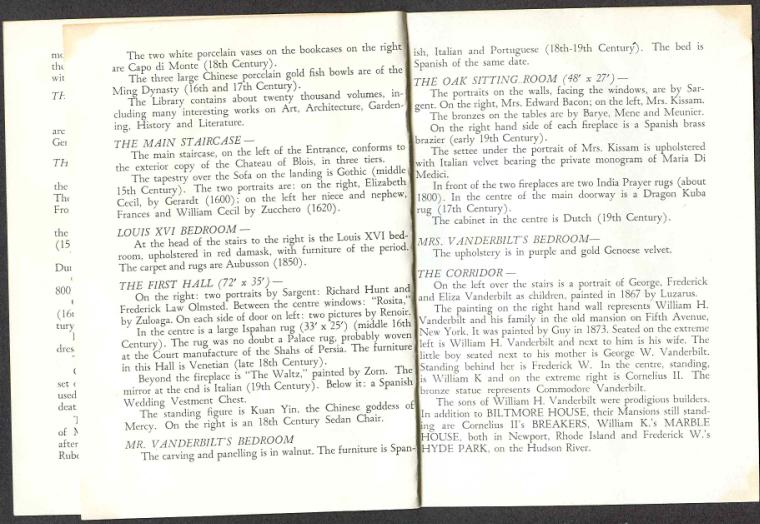 mo
the
wit
TH
are
Ger
Th
the
The
Fro
the
(15
Dur
800
(16
tury
dres
set
used
deat
of M
after
Rube
The two white porcelain vases on the bookcases on the right
are Capo di Monte (18th Century).
The three large Chinese porcelain gold fish bowls are of the
Ming Dynasty (16th and 17th Century).
The Library contains about twenty thousand volumes, in-
cluding many interesting works on Art, Architecture, Garden-
ing, History and Literature.
THE MAIN STAIRCASE —
The main staircase, on the left of the Entrance, conforms to
the exterior copy of the Chateau of Blois, in three tiers.
The tapestry over the Sofa on the landing is Gothic (middle
15th Century). The two portraits are: on the right, Elizabeth
Cecil, by Gerardt (1600); on the left her niece and nephew,
Frances and William Cecil by Zucchero (1620).
LOUIS XVI BEDROOM —
At the head of the stairs to the right is the Louis XVI bed-
room, upholstered in red damask, with furniture of the period.
The carpet and rugs are Aubusson (1850).
THE FIRST HALL (72' x 35') —
On the right: two portraits by Sargent: Richard Hunt and
Frederick Law Olmsted. Between the centre windows: "Rosita,"
by Zuloaga. On each side of door on left: two pictures by Renoir.
In the centre is a large Ispahan rug (33' x 25') (middle 16th
Century). The rug was no doubt a Palace rug, probably woven
at the Court manufacture of the Shahs of Persia. The furniture
in this Hall is Venetian (late 18th Century).
Beyond the fireplace is "The Waltz," painted by Zorn. The
mirror at the end is Italian (19th Century). Below it: a Spanish
Wedding Vestment Chest.
The standing figure is Kuan Yin, the Chinese goddess of
Mercy. On the right is an 18th Century Sedan Chair.
MR. VANDERBILT'S BEDROOM
The carving and panelling is in walnut. The furniture is Span-
ish, Italian and Portuguese (18th-19th Century). The bed is
Spanish of the same date.
THE OAK SITTING ROOM (48' x 27') —
The portraits on the walls, facing the windows, are by Sar-
gent. On the right, Mrs. Edward Bacon; on the left, Mrs. Kissam.
The bronzes on the tables are by Barye, Mene and Meunier.
On the right hand side of each fireplace is a Spanish brass
brazier (early 19th Century).
The settee under the portrait of Mrs. Kissam is upholstered
with Italian velvet bearing the private monogram of Maria Di
Medici.
In front of the two fireplaces are two India Prayer rugs (about
1800). In the centre of the main doorway is a Dragon Kuba
rug (17th Century).
The cabinet in the centre is Dutch (19th Century).
MRS. VANDERBILT'S BEDROOM—
The upholstery is in purple and gold Genoese velvet.
THE CORRIDOR —
On the left over the stairs is a portrait of George, Frederick
and Eliza Vanderbilt as children, painted in 1867 by Luzarus.
The painting on the right hand wall represents William H.
Vanderbilt and his family in the old mansion on Fifth Avenue,
New York. It was painted by Guy in 1873. Seated on the extreme
left is William H. Vanderbilt and next to him is his wife. The
little boy seated next to his mother is George W. Vanderbilt.
Standing behind her is Frederick W. In the centre, standing,
is William K and on the extreme right is Cornelius II. The
bronze statue represents Commodore Vanderbilt.
The sons of William H. Vanderbilt were prodigious builders.
In addition to BILTMORE HOUSE, their Mansions still stand-
ing are Cornelius II's BREAKERS, William K.'s MARBLE
HOUSE, both in Newport, Rhode Island and Frederick W.'s
HYDE PARK, on the Hudson River.